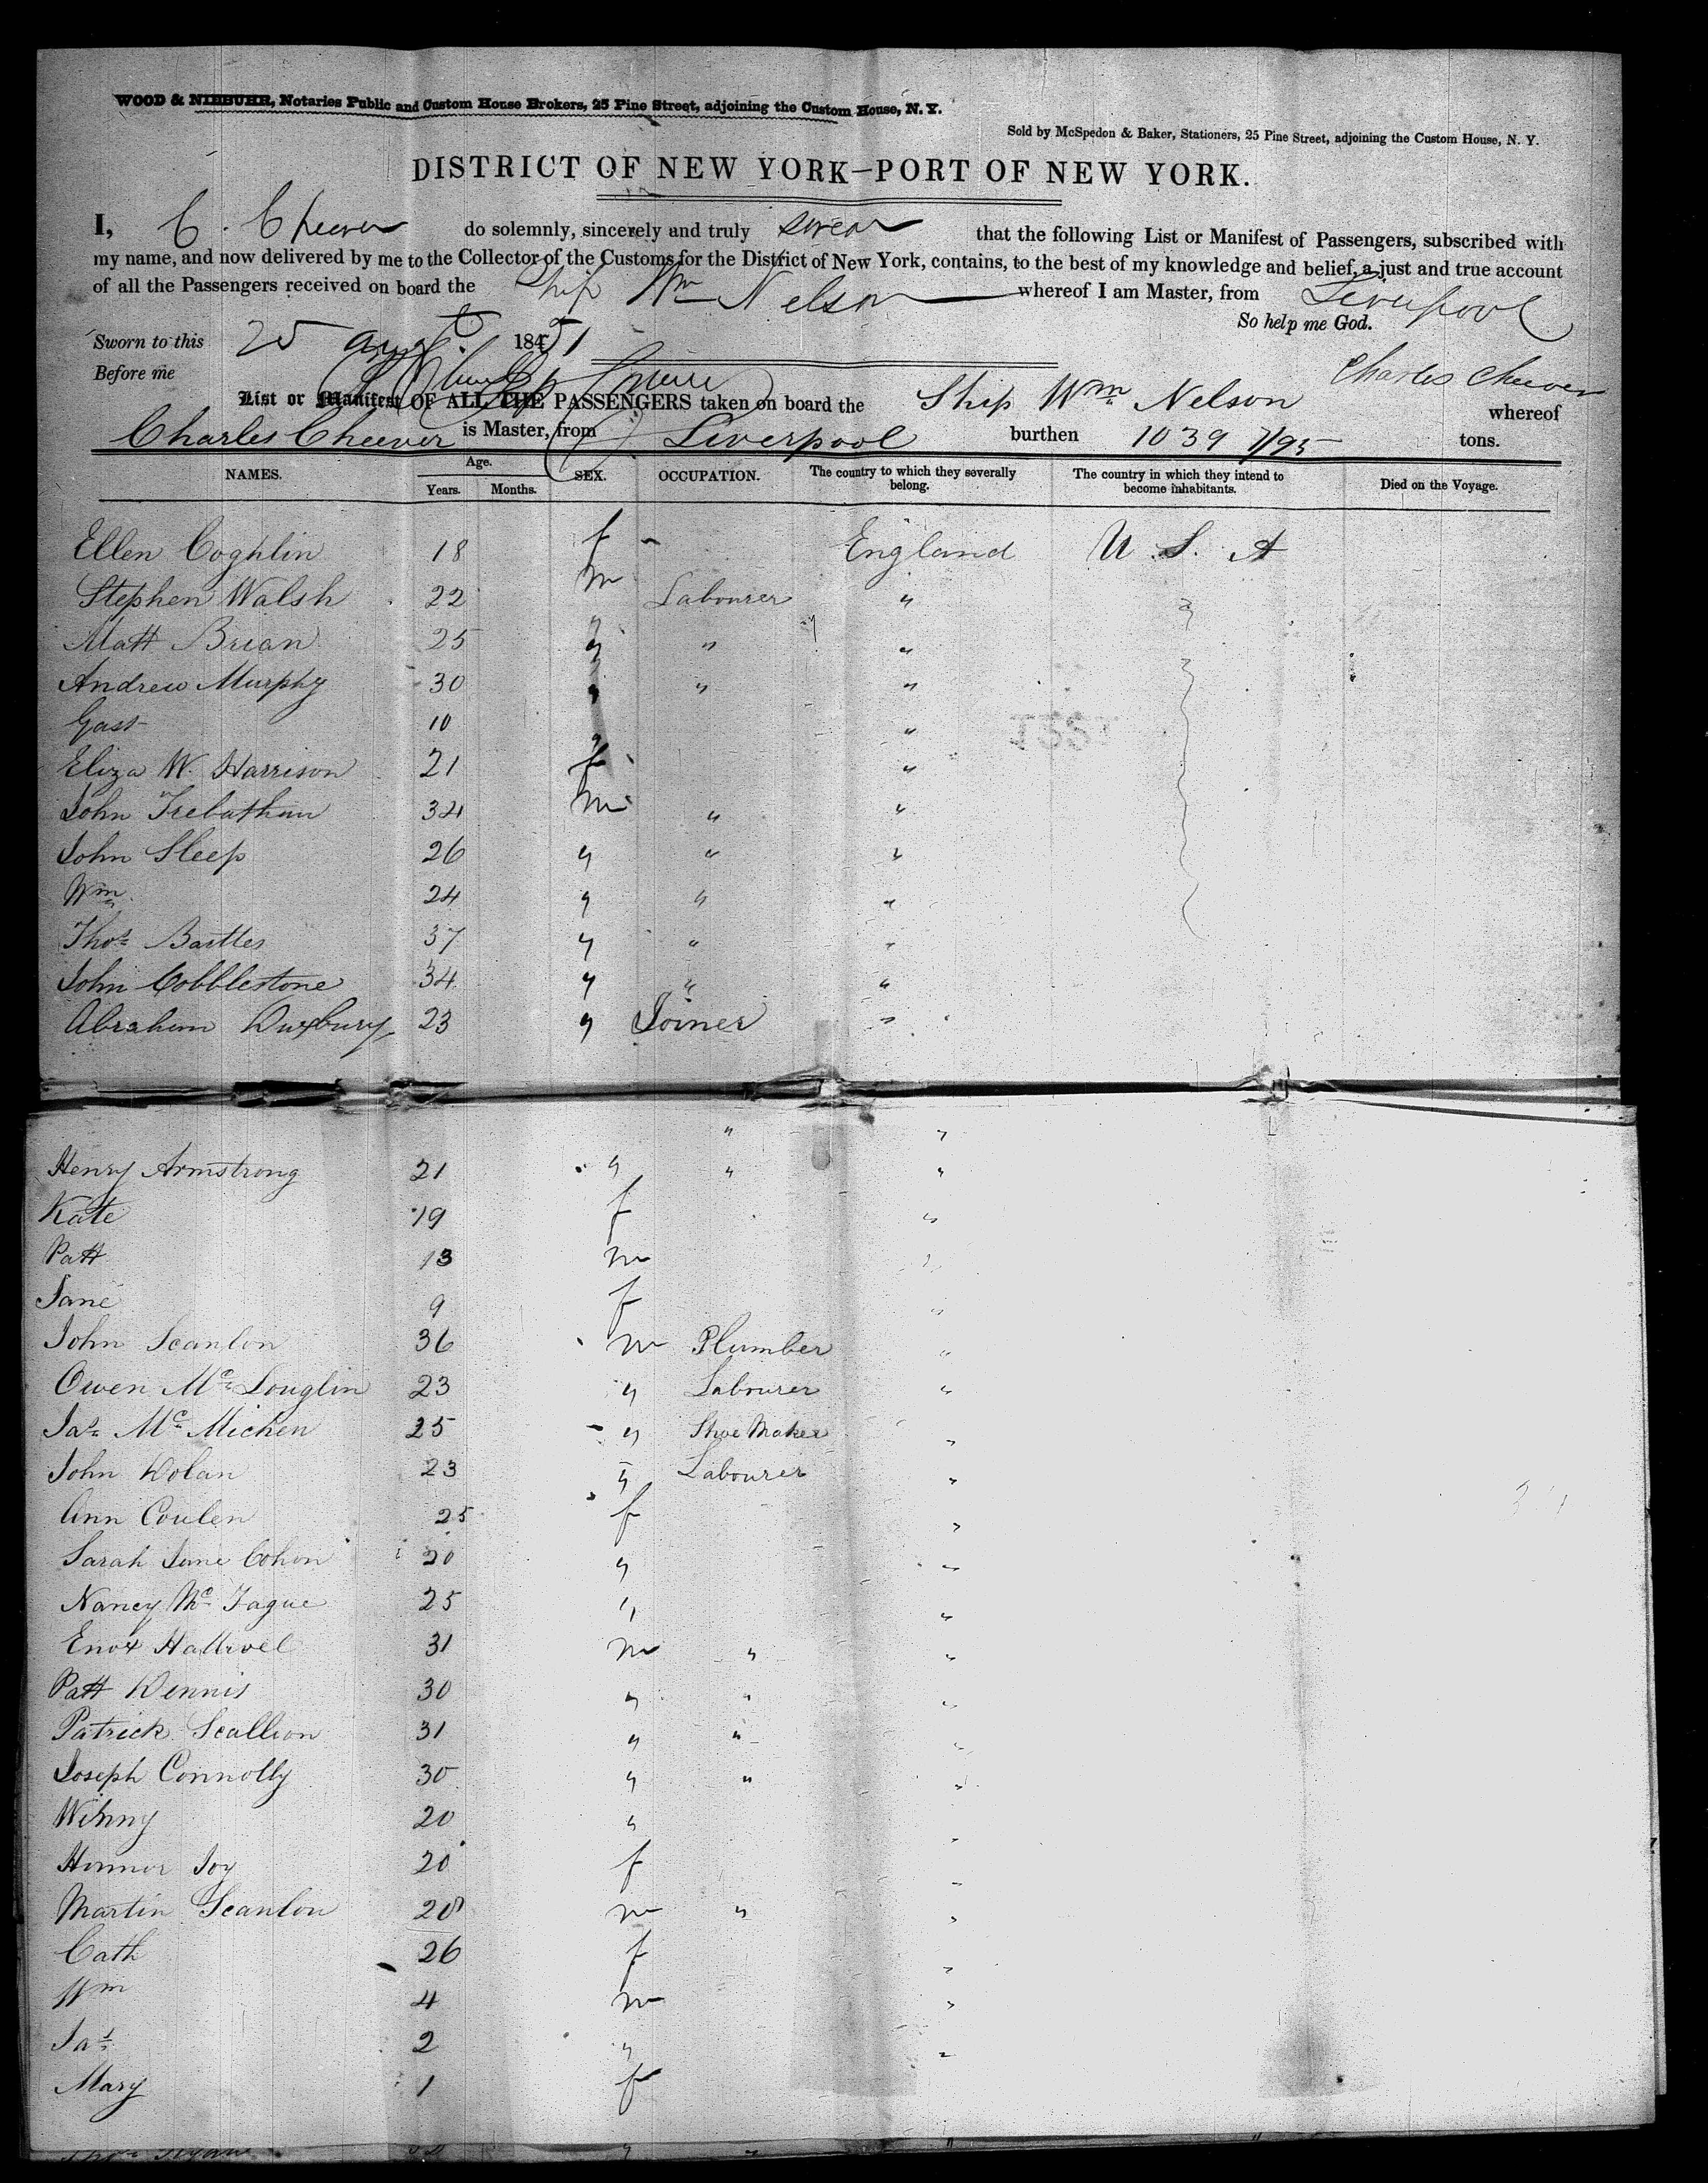 WOOD & NIEBUHR, Notaries Public and Custom House Brokers, 25 Pine Street, adjoining the Custom House, N. Y.
Sold by McSpedon & Baker, Stationers, 25 Pine Street, adjoining the Custom House, N. Y.
DISTRICT OF NEW YORK—PORT OF NEW YORK.
I, C. Cheever do solemnly, sincerely and truly swear that the following List or Manifest of Passengers, subscribed with
my name, and now delivered by me to the Collector of the Customs for the District of New York, contains, to the best of my knowledge and belief, a just and true account
of all the Passengers received on board the Ship Wm Nelson whereof I am Master, from Liverpool
So help me God.
Sworn to this 25 augt 1851
Before me
Charles Cheever
List or Manifest OF ALL THE PASSENGERS taken on board the Ship Wm Nelson whereof
Charles Cheever is Master, from Liverpool burthen 1039 7/95 tons.
NAMES. Age. Years. Months. SEX. OCCUPATION. The country to which they severally belong. The country in which they intend to become inhabitants. Died on the Voyage.
Ellen Coghlin 18 f - England U. S. A
Stephen Walsh 22 m Labourer "
Matt Brian 25 " " "
Andrew Murphy 30 " " "
Gast 10 " "
Eliza W. Harrison 21 f "
John Trebathan 34 m " "
John Sleep 26 " " "
Wm 24 " " "
Thos Bartles 37 " " "
John Cobblestone 34 " " "
Abraham Duxbury 23 " Joiner "
" "
Henry Armstrong 21 " " "
Kate 19 f "
Patt 13 m "
Jane 9 f "
John Scanlon 36 m Plumber "
Owen Mc Louglin 23 " Labourer "
Jas Mc Micken 25 " Shoe Maker "
John Dolan 23 " Labourer "
Ann Coulen 25 f "
Sarah Jane Cohon 20 " "
Nancy Mc Tague 25 " "
Enox Halliwel 31 m " "
Patt Dennis 30 " " "
Patrick Scallion 31 " " "
Joseph Connolly 30 " " "
Winny 20 " "
Honnor Joy 20 f "
Martin Scanlon 28 m " "
Cath 26 f "
Wm 4 m "
Jas 2 " "
Mary 1 f